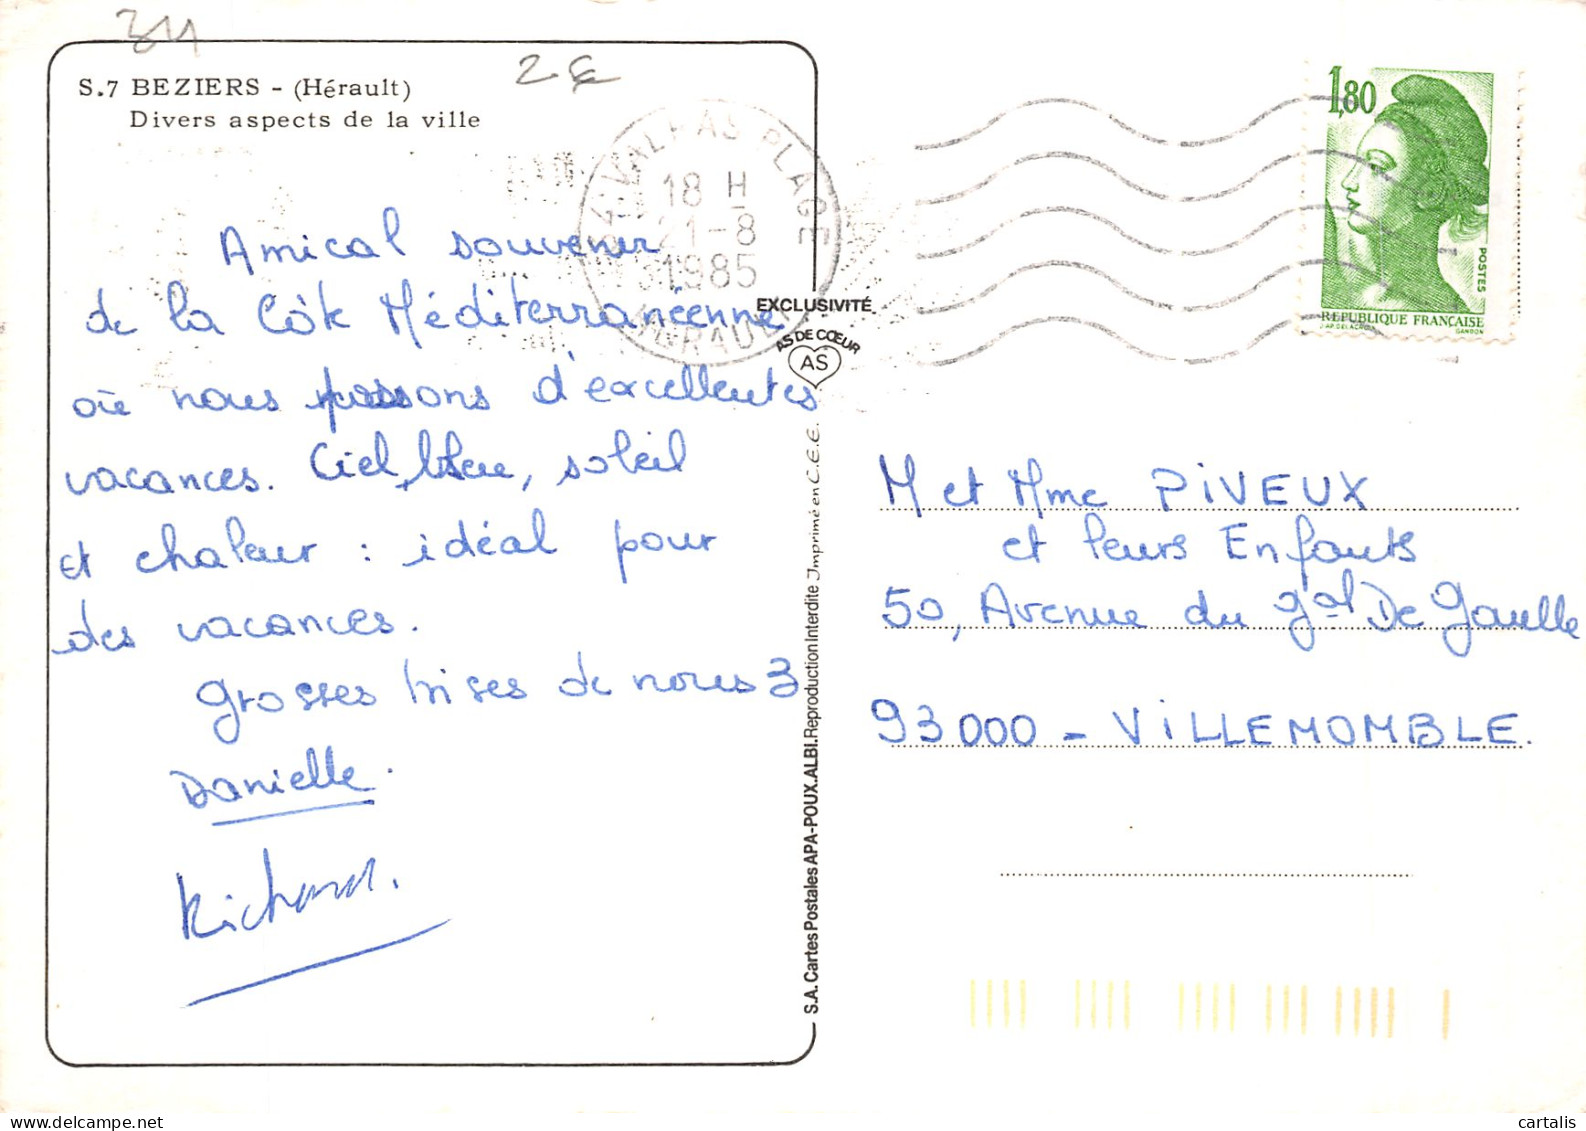 34
2€
S.7 BEZIERS - (Hérault)
Divers aspects de la ville
34 VALRAS PLAGE
18 H
21-8
1985
HERAULT
1,80
POSTES
REPUBLIQUE FRANÇAISE
D'AP. DELACROIX GANDON
Amical souvenir
de la Côte Méditerranéenne
où nous passons d'excellentes
vacances. Ciel bleu, soleil
et chaleur : idéal pour
des vacances.
Grosses bises de nous 3
Danielle.
Richard.
EXCLUSIVITÉ
AS DE CŒUR
AS
S.A. Cartes Postales APA-POUX. ALBI. Reproduction Interdite Imprimé en C.E.E.
M et Mme PiVEUX
et leurs Enfants
50, Avenue du gal De Gaulle
93000 - ViLLEMOMBLE.
cartalis